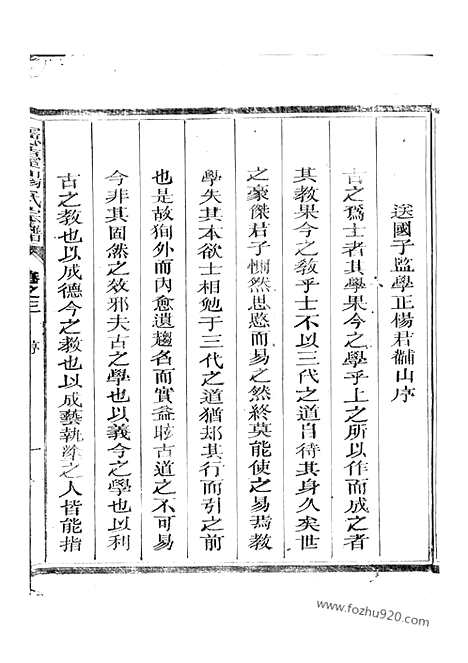 送國子監學正楊君黼山序
古之爲士者其學果今之學乎上之所以作而成之者
其教果今之教乎士不以三代之道自待其身久矣世
之豪傑君子惻然思慼而易之然終莫能使之易焉教
學失其本欲士相勉于三代之道猶却其行而引之前
也是故狥外而內愈遺趨名而實益眩古道之不可易
今非其固然之效邪夫古之學也以義今之學也以利
古之教也以成德今之教也以成藝執涂之人皆能指
氏宗譜
卷之三
序
www.fozhu920.com